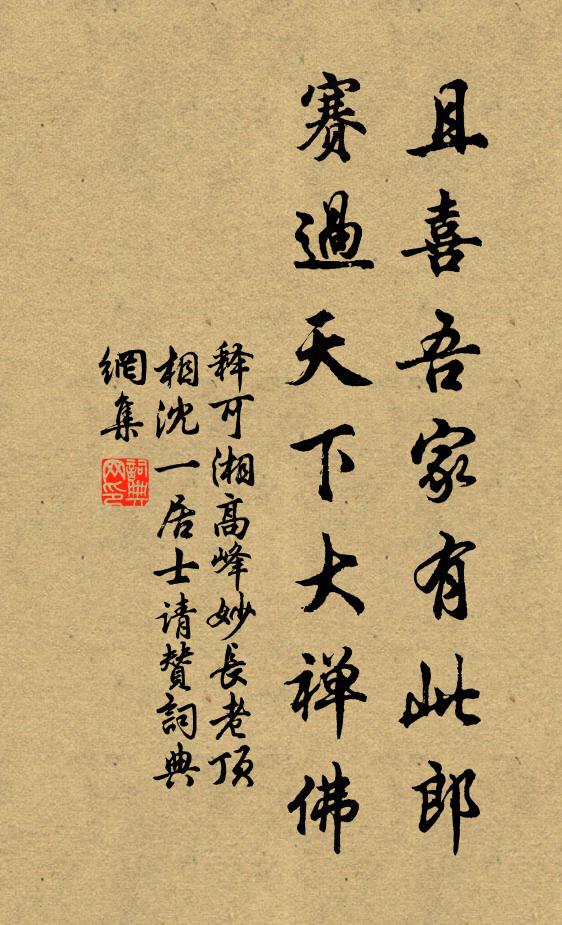 且喜吾家有此郎
赛過天下大禅佛
释可湘高峰妙長老顶
相沈一居士请赞詞典
網集
詞典网印